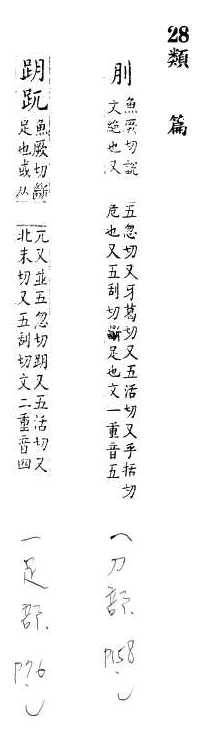 28類 篇
刖 魚厥切說
文跪也又
五忽切又牙葛切又五活切又乎括切
危也又五刮切斷足也文一重音五
(刀部 P158)
跀 䟦 魚厥切斷
足也或从
兀又並五忽切跀又五活切又
北末切又五刮切文二重音四
(足部 P76)